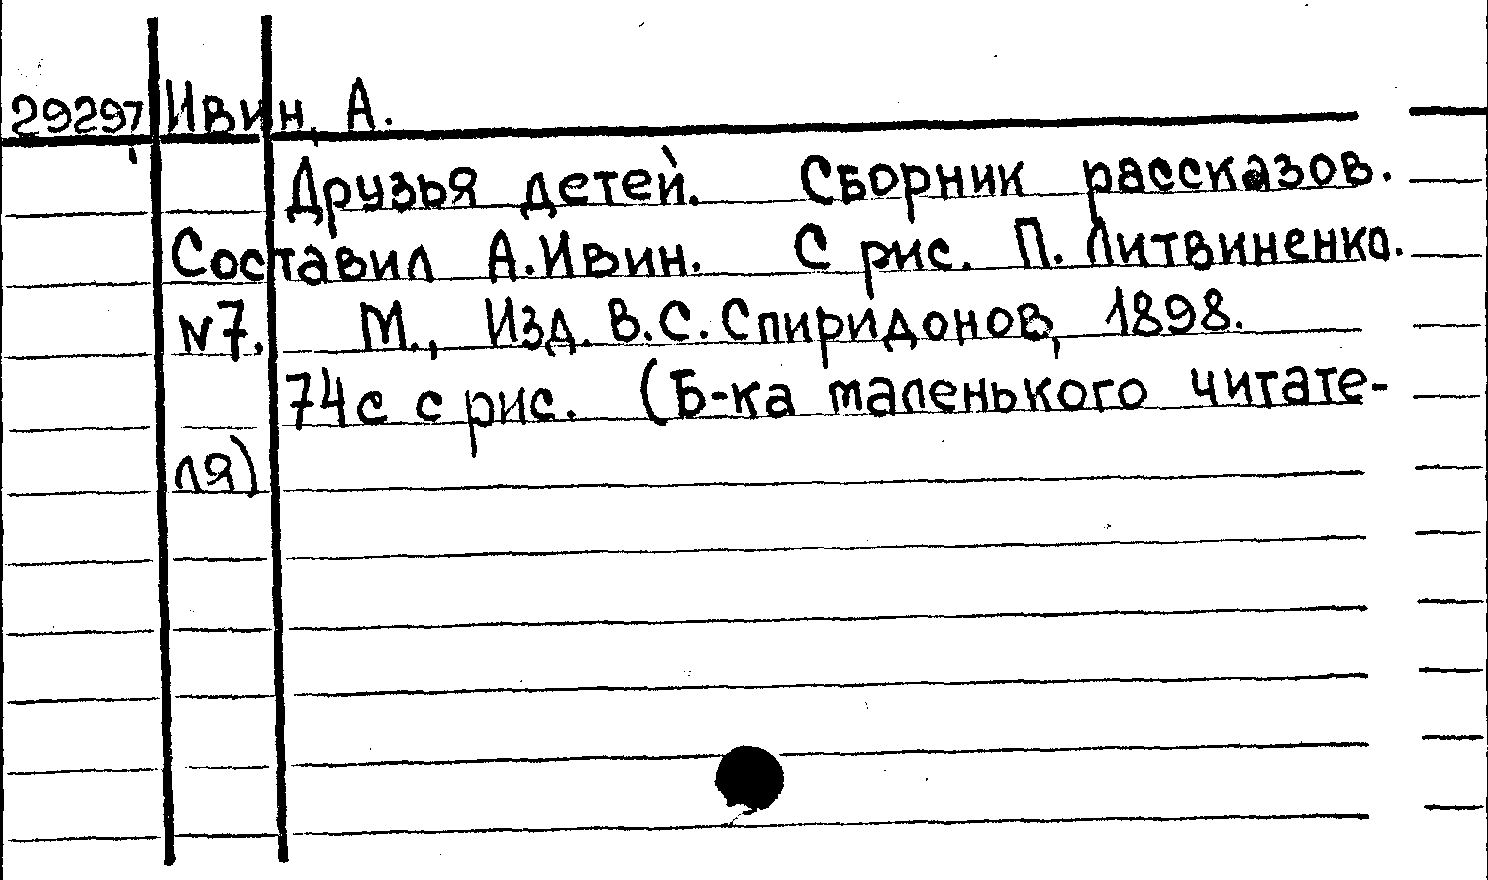 29297 Ивин, А.
Друзья детей. Сборник рассказов.
Составил А.Ивин. С рис. П. Литвиненко.
N7. М., Изд. В.С. Спиридонов, 1898.
74с с рис. (Б-ка маленького читате-
ля)